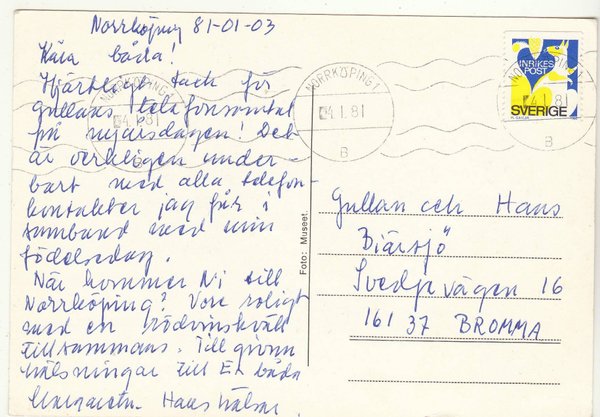 Norrköping 81-01-03
Kära båda!
Hjärtligt tack för
Gullans telefonsamtal
på nyårsdagen! Det
är verkligen under-
bart med alla telefon-
kontakter jag får i
samband med min
födelsedag.
När kommer Ni till
Norrköping? Vore roligt
med en rödvinskväll
tillsammans. Till
hälsningar till Er båda
Hans
Foto: Museet.
NORRKÖPING 1
-4.1.81
B
INRIKES
POST
SVERIGE
Gullan och Hans
Biärsjö
Svedjevägen 16
161 37 BROMMA